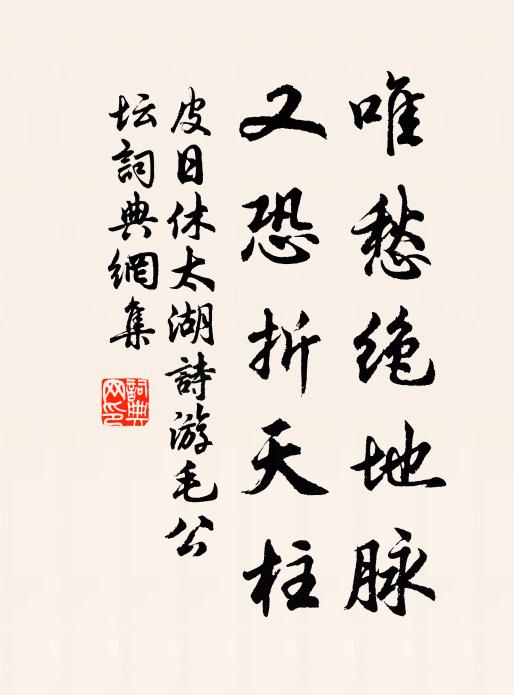 唯愁绝地脉
又恐折天柱
皮日休太湖詩游毛公
坛詞典網集
詞典
网印